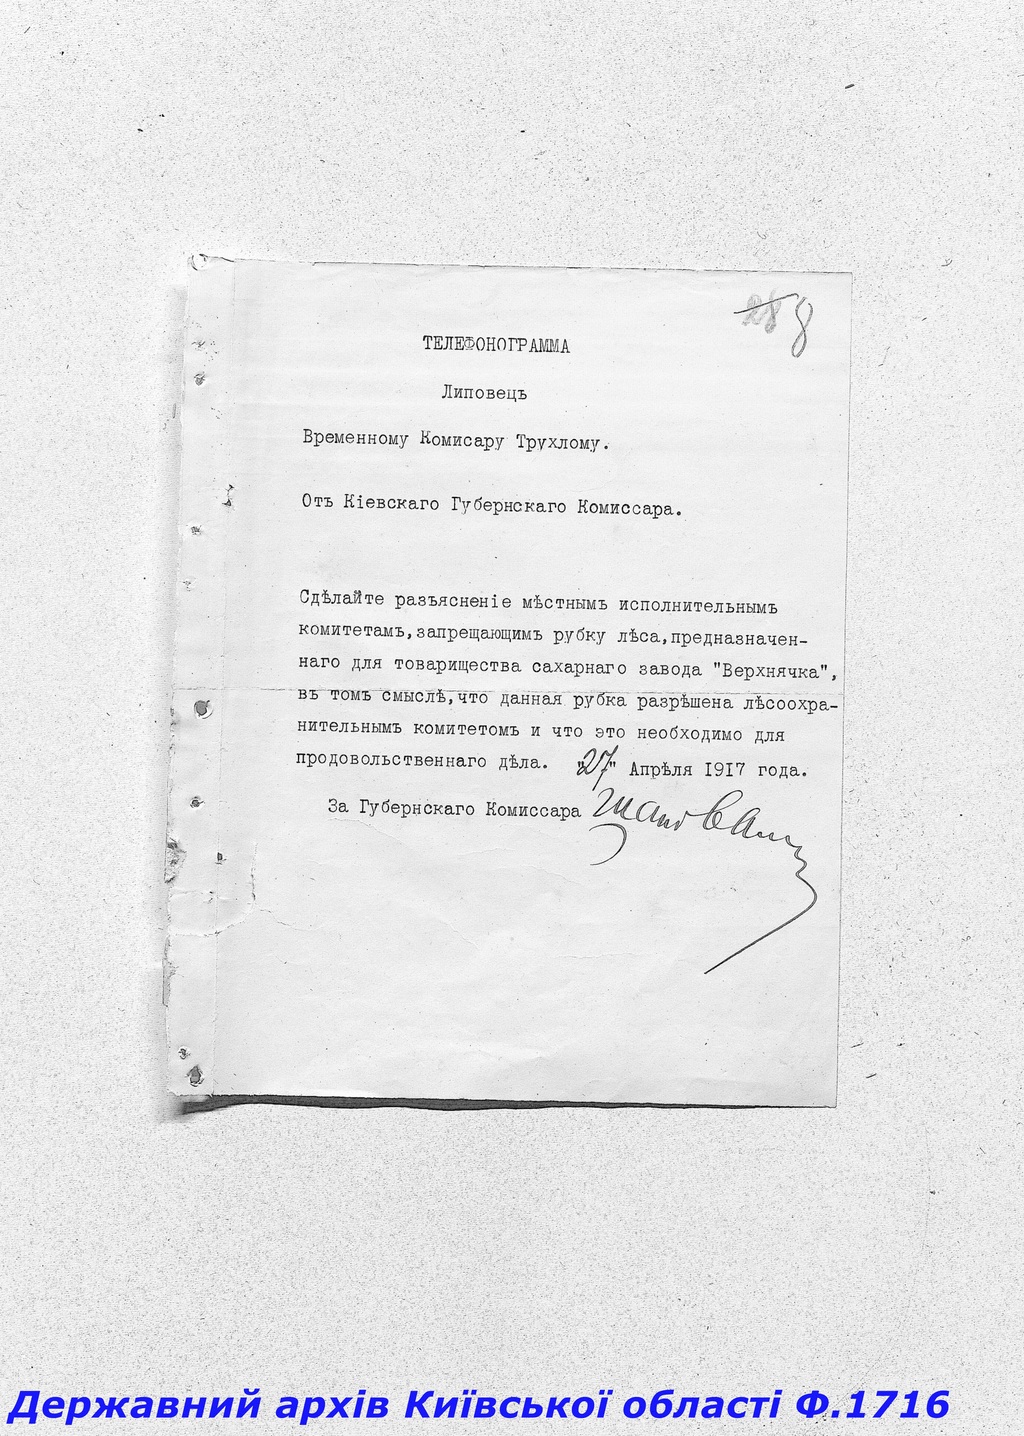 28 8
ТЕЛЕФОНОГРАММА
Липовецъ
Временному Комисару Трухлому.
Отъ Кіевскаго Губернскаго Комиссара.
Сдѣлайте разъясненіе мѣстнымъ исполнительнымъ
комитетамъ, запрещающимъ рубку лѣса, предназначен-
наго для товарищества сахарнаго завода "Верхнячка",
въ томъ смыслѣ, что данная рубка разрѣшена лѣсоохра-
нительнымъ комитетомъ и что это необходимо для
продовольственнаго дѣла. "27" Апрѣля 1917 года.
За Губернскаго Комиссара
Державний архів Київської області Ф.1716